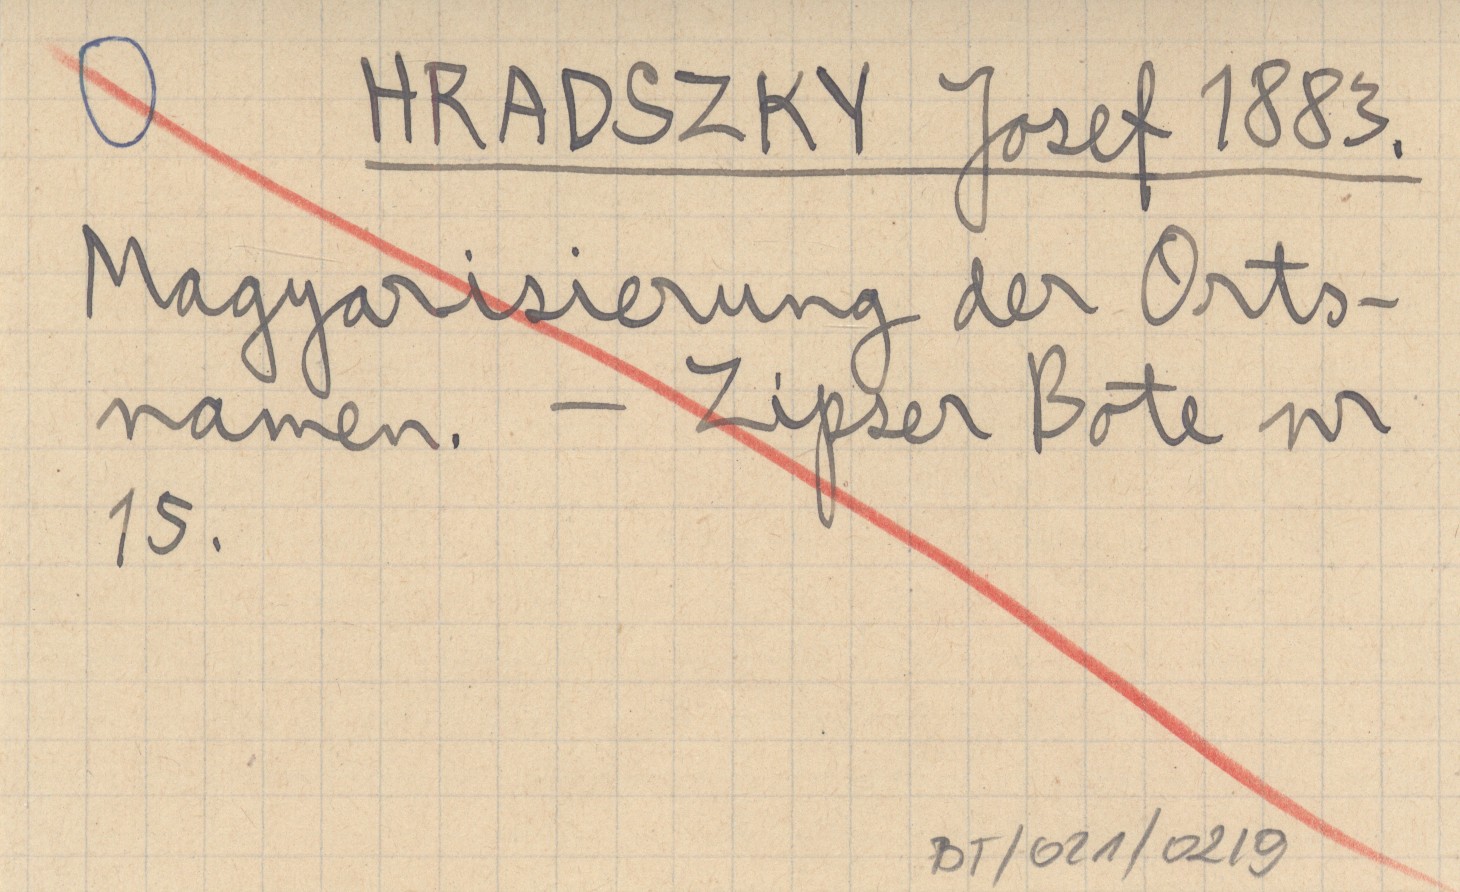 HRADSZKY Josef 1883.
Magyarisierung der Orts-
namen. — Zipser Bote nr
15.
BT/021/0219